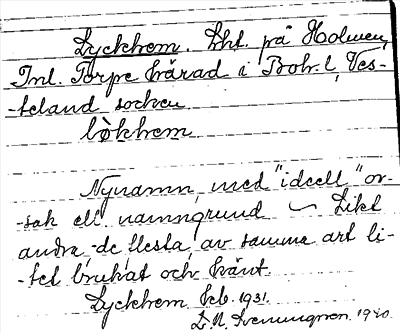 Lyckhem. Lht. på Holmen,
Inl. Torpe härad i Boh. l. Ves-
-teland socken
lỳkhem
Nynamn, med "ideell" or-
-sak ell. namngrund ~ Likt
andra, de flesta, av samma art li-
-tet brukat och känt.
Lyckhem feb. 1931.
1940.